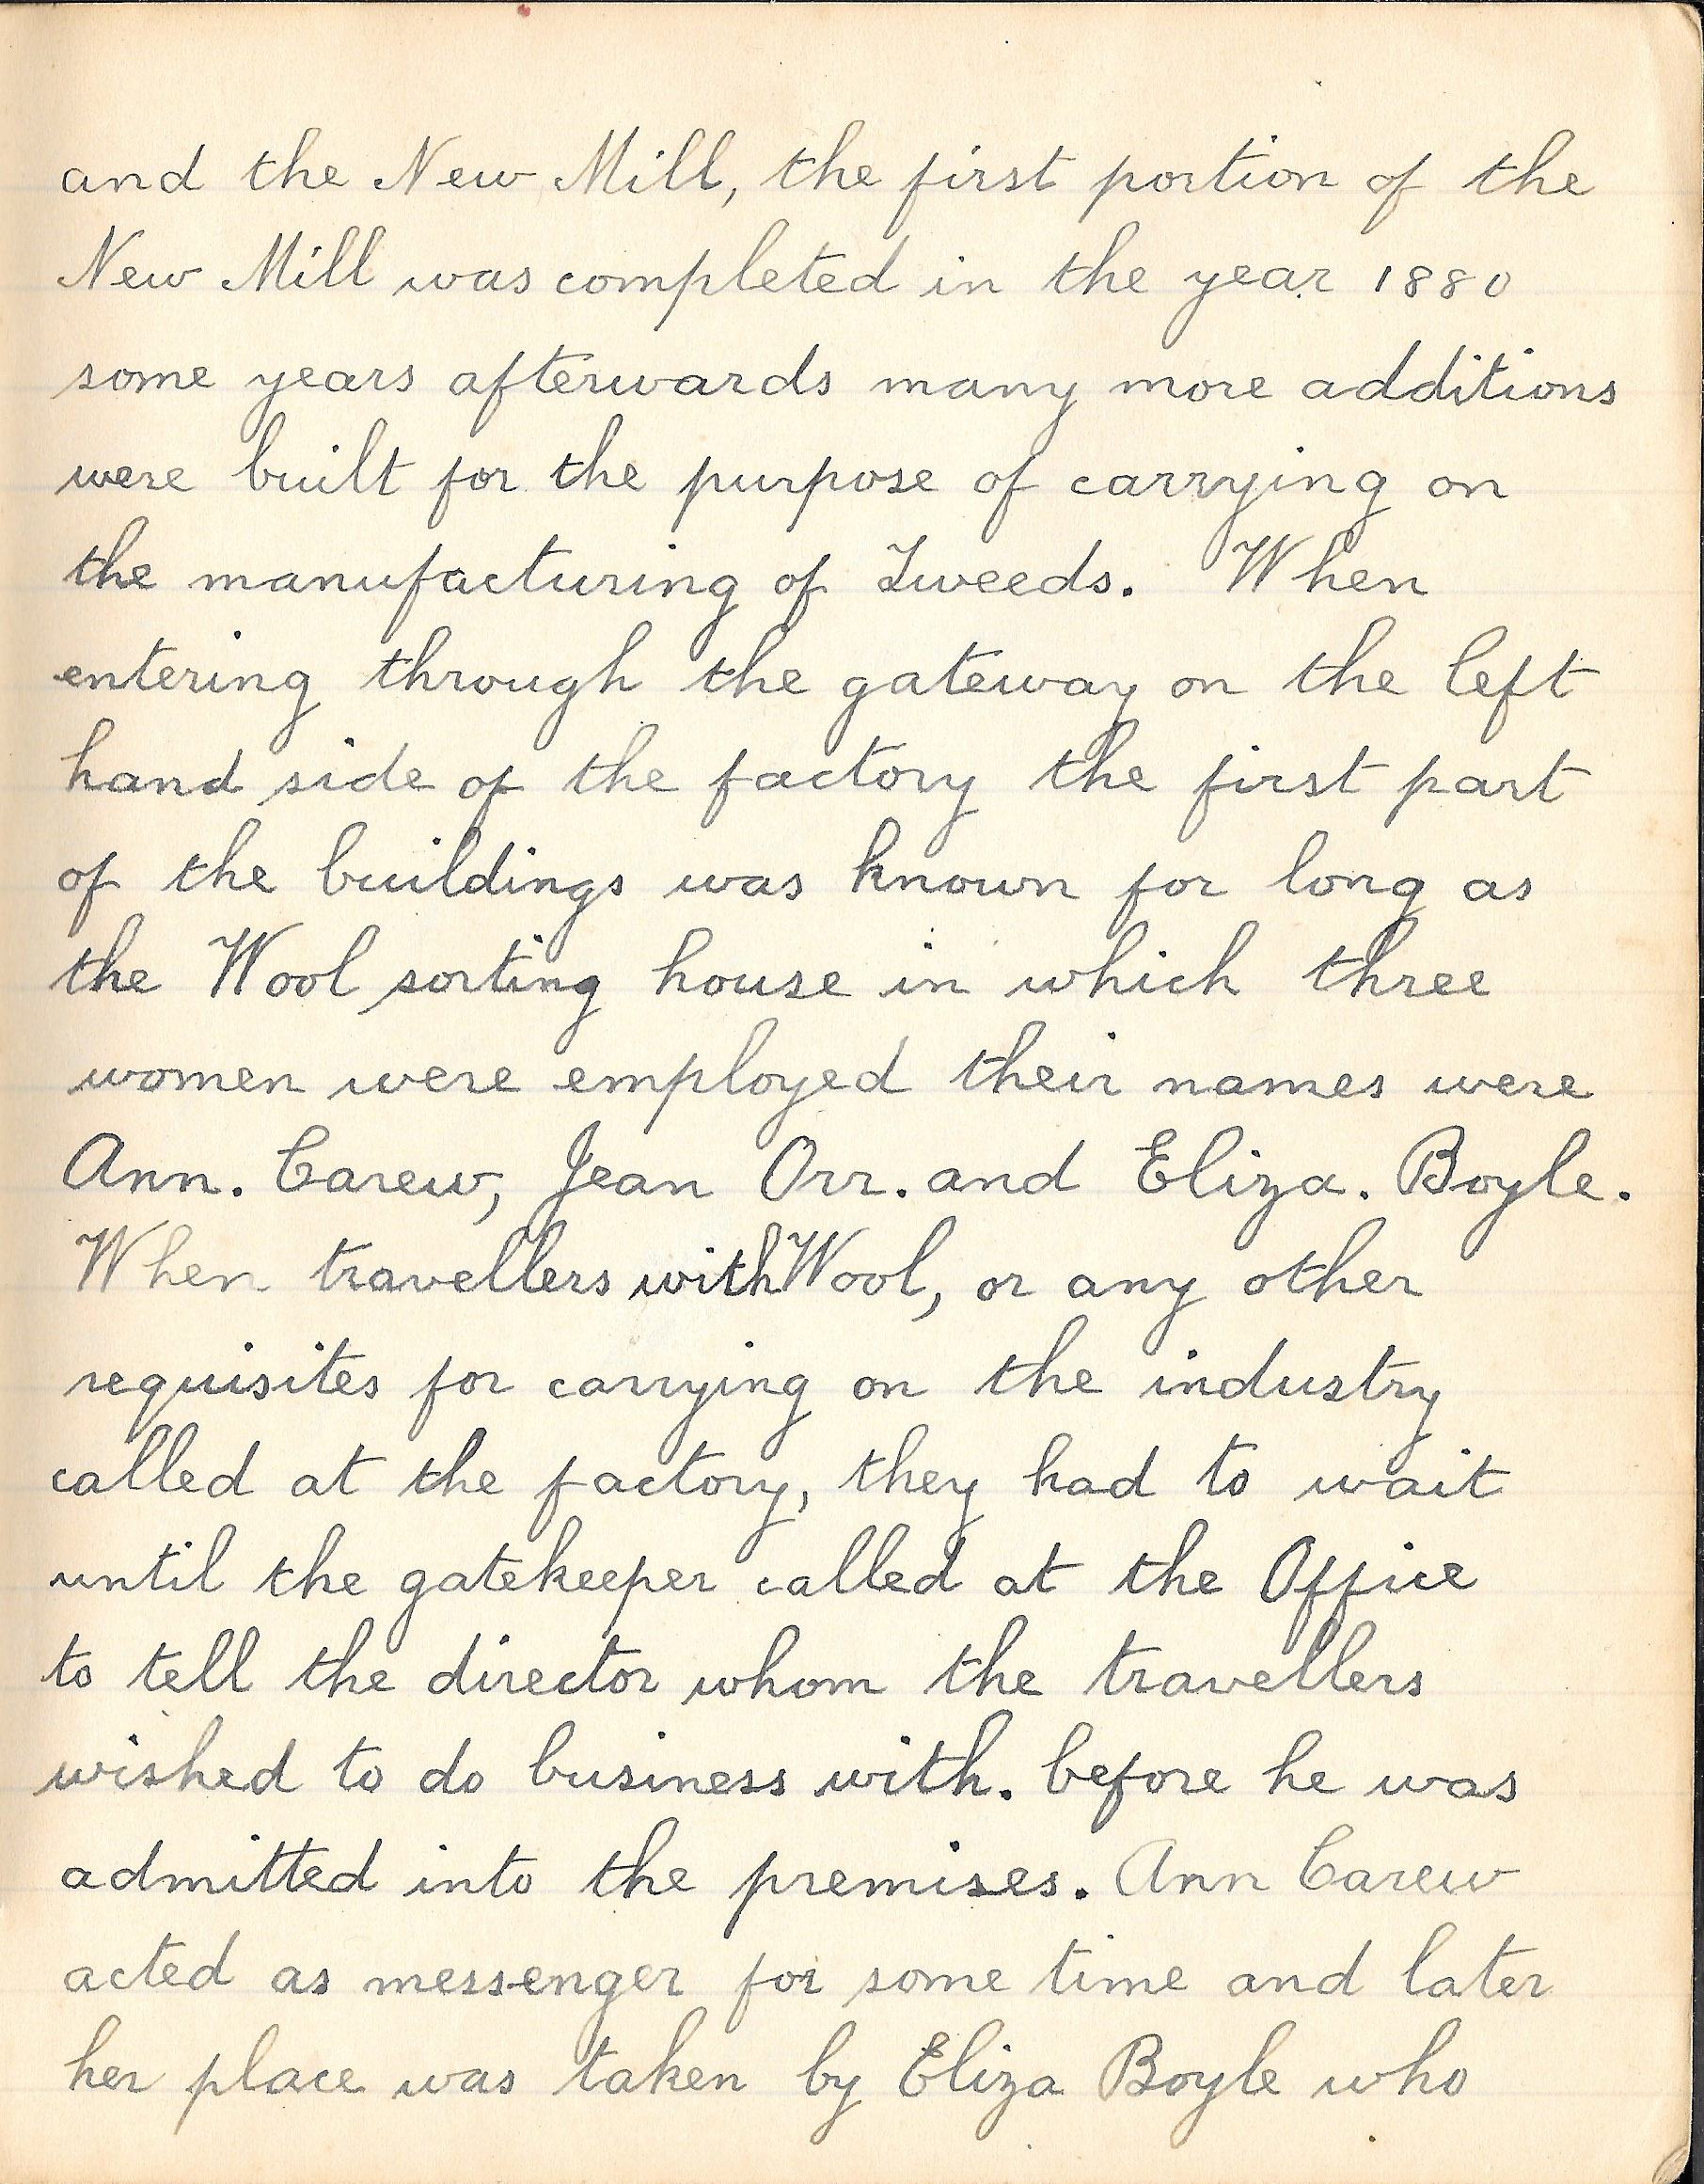 and the New Mill, the first portion of the
New Mill was completed in the year 1880
some years afterwards many more additions
were built for the purpose of carrying on
the manufacturing of Tweeds. When
entering through the gateway on the left
hand side of the factory the first part
of the buildings was known for long as
the Wool sorting house in which three
women were employed their names were
Ann. Carew, Jean Orr. and Eliza. Boyle.
When travellers with Wool, or any other
requisites for carrying on the industry
called at the factory, they had to wait
until the gatekeeper called at the Office
to tell the director whom the travellers
wished to do business with. before he was
admitted into the premises. Ann Carew
acted as messenger for some time and later
her place was taken by Eliza Boyle who